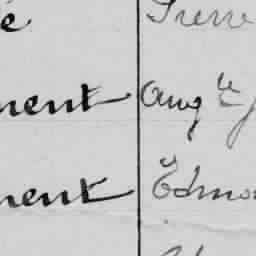 é Pierre
ment Aug te J
ment Edmo